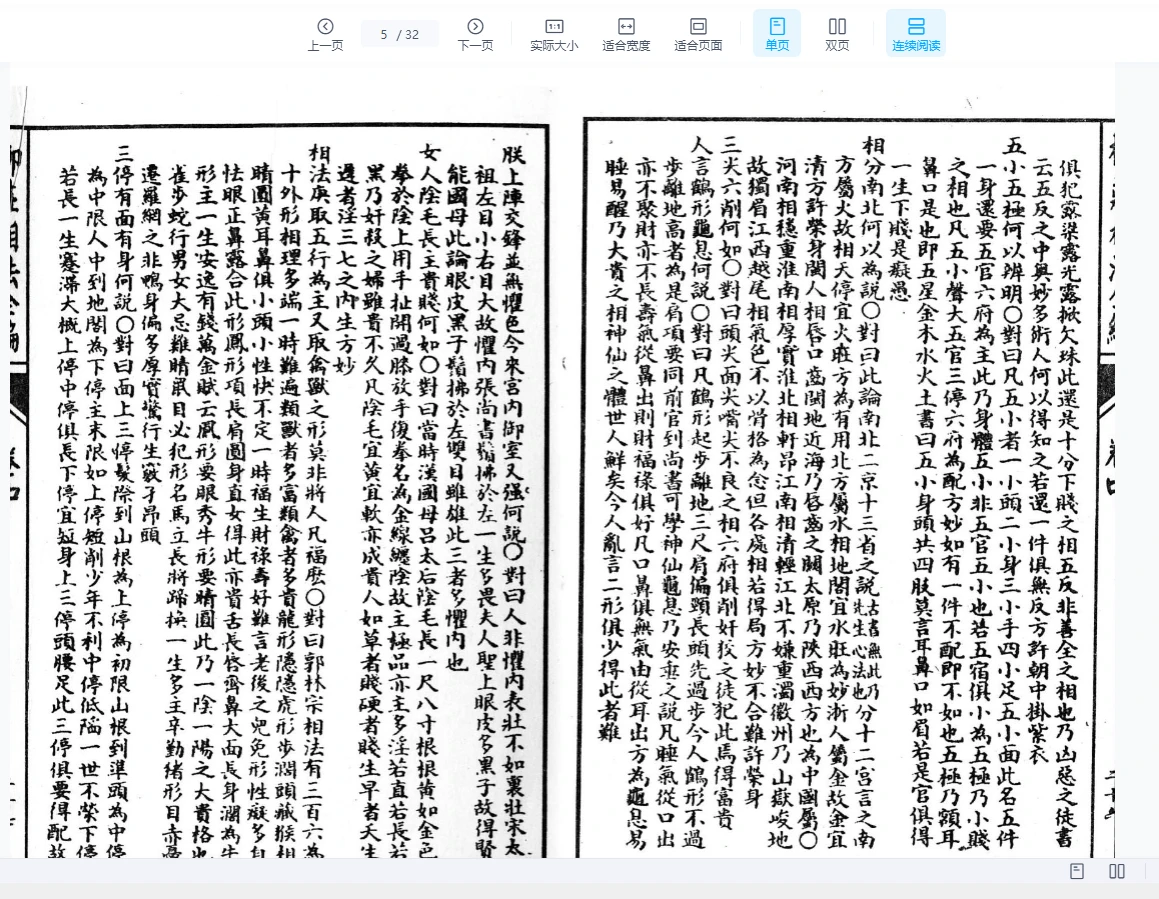 上一页
5 / 32
下一页
1:1
实际大小
适合宽度
适合页面
单页
双页
连续阅读
俱犯露梁露光露掀欠珠此還是十分下賤之相五反非善全之相也乃凶惡之徒書
云五反之中奥妙多術人何以得知之若還一件俱無反方許朝中掛紫衣
五小五極何以辨明〇對曰凡五小者一小頭二小身三小手四小足五小面此名五件
一身還要五官六府為主此乃身體五小非五官五小也若五宿俱小為五極乃小賤
之相也凡五小聲大五官三停六府為配方妙如有一件不配即不如也五極乃額耳
鼻口是也即五星金木水火土書曰五小身頭共四肢莫言耳鼻口如眉若是官俱得
一生下賤是癡愚
相分南北何以為説〇對曰此論南北二京十三省之説古書無此乃先生心法也分十二宮言之南
方屬火故相天停宜火旺方為有用北方屬水相地閣宜水旺為妙浙人屬金故金宜
清方許榮身閩人相唇口蓋閩地近海乃唇齒之關太原乃陝西西方也為中國屬〇
河南相穩重淮南相厚實淮北相軒昂江南相清輕江北不嫌重濁徽州乃山嶽峻地
故獨眉江西越尾相氣色不以骨格為念但各處相若得局方妙不合難許榮身
三尖六削何如〇對曰頭尖面尖嘴尖不良之相六府俱削奸狡之徒犯此馬得富貴
人言鶴形龜息何説〇對曰凡鶴形起步離地三尺肩偏頸長頭先過步今人鶴形不過
步離地高者為是肩項要同前官到尚書可學神仙龜息乃安垂之説凡睡氣從口出
亦不聚財亦不長壽氣從鼻出則財福祿俱好凡口鼻俱無氣由從耳出方為龜息易
睡易醒乃大貴之相神仙之體世人鮮矣今人亂言二形俱少得此者難
朕上陣交鋒並無懼色今來宮内御室又强何説〇對曰人非懼内表壯不如裏壯宋太
祖左目小右目大故懼内張尚書鬚拂於左一生多畏夫人聖上眼皮多黑子故得賢
能國母此論眼皮黑子鬚拂於左雙目雖雄此三者多懼内也
女人陰毛長主貴賤何如〇對曰當時漢國母呂太后陰毛長一尺八寸根根黃如金色
拳於陰上用手扯開過膝放手復拳名為金線纏陰故王極品亦主多淫若直若長若
黑乃奸殺之婦雖貴不久凡陰毛宜黃宜軟亦成貴人如草者賤硬者賤生早者夭生
遲者淫三七之内生方妙
相法庚取五行為主又取禽獸之形莫非將人凡福麽〇對曰郭林宗相法有三百六為
十外形相理多端一時難遍類獸者多富類禽者多貴龍形隱隱虎形步濶頭藏猴相
睛圓黃耳鼻俱小頭小性快不定一時福生財祿壽好難言老後之兇兔形性癡多自
怯眼正鼻露合此形鳳形項長肩圓身直女得此亦貴舌長唇齊鼻大面長身濶為牛
形主一生安逸有錢萬金賦云鳳形要眼秀牛形要睛圓此乃一陰一陽之大貴格也
雀步蛇行男女大忌雞睛鼠目必犯形名馬立長將蹄換一生多主辛勤緒形目赤
遭羅網之非鴨身偏多厚實鵞行生竅孑昂頭
三停有面有身何説〇對曰面上三停髮際到山根為上停為初限山根到準頭為中停
為中限人中到地閣為下停主末限如上停短削少年不利中停低陷一世不榮下停
若長一生蹇滯大槪上停中停俱長下停宜短身上三停頭腰足此三停俱要得配故